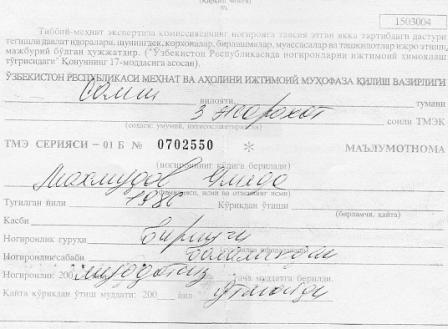 1503004
Тиббий-меҳнат экспертиза комиссиясининг ногиронга тавсия этган якка тартибдаги дастури
тегишли давлат идоралари, шунингдек, корхоналар, бирлашмалар, муассасалар ва ташкилотлар ижро этиши
мажбурий бўлган ҳужжатдир. ("Ўзбекистон Республикасида ногиронларни ижтимоий ҳимоялаш
тўғрисидаги" Қонуннинг 17-моддасига асосан).
ЎЗБЕКИСТОН РЕСПУБЛИКАСИ МЕҲНАТ ВА АҲОЛИНИ ИЖТИМОИЙ МУҲОФАЗА ҚИЛИШ ВАЗИРЛИГИ
вилояти, тумани
3 жароҳат сонли ТМЭК
(соҳаси: умумий, ихтисослаштирилган)
ТМЭ СЕРИЯСИ – 01 Б № 0702550 * МАЪЛУМОТНОМА
(ногироннинг қўлига берилади)
Махмудов
(фамилияси, исми ва отасининг исми)
Туғилган йили Кўрикдан ўтиши
(бирламчи, қайта)
Касби
Ногиронлик гуруҳи Биринчи
Ногиронлик сабаби
Ногиронлик: 200 муддатсиз гача муддатга берилди.
Қайта кўрикдан ўтиш муддати: 200 йил ўтмайди